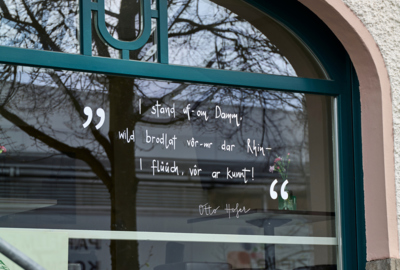 „I stand uf-om Damm,
wild brodlat vör-mr dar Rhin–
I flüüch, vör ar kunnt!“
Otto Hofer